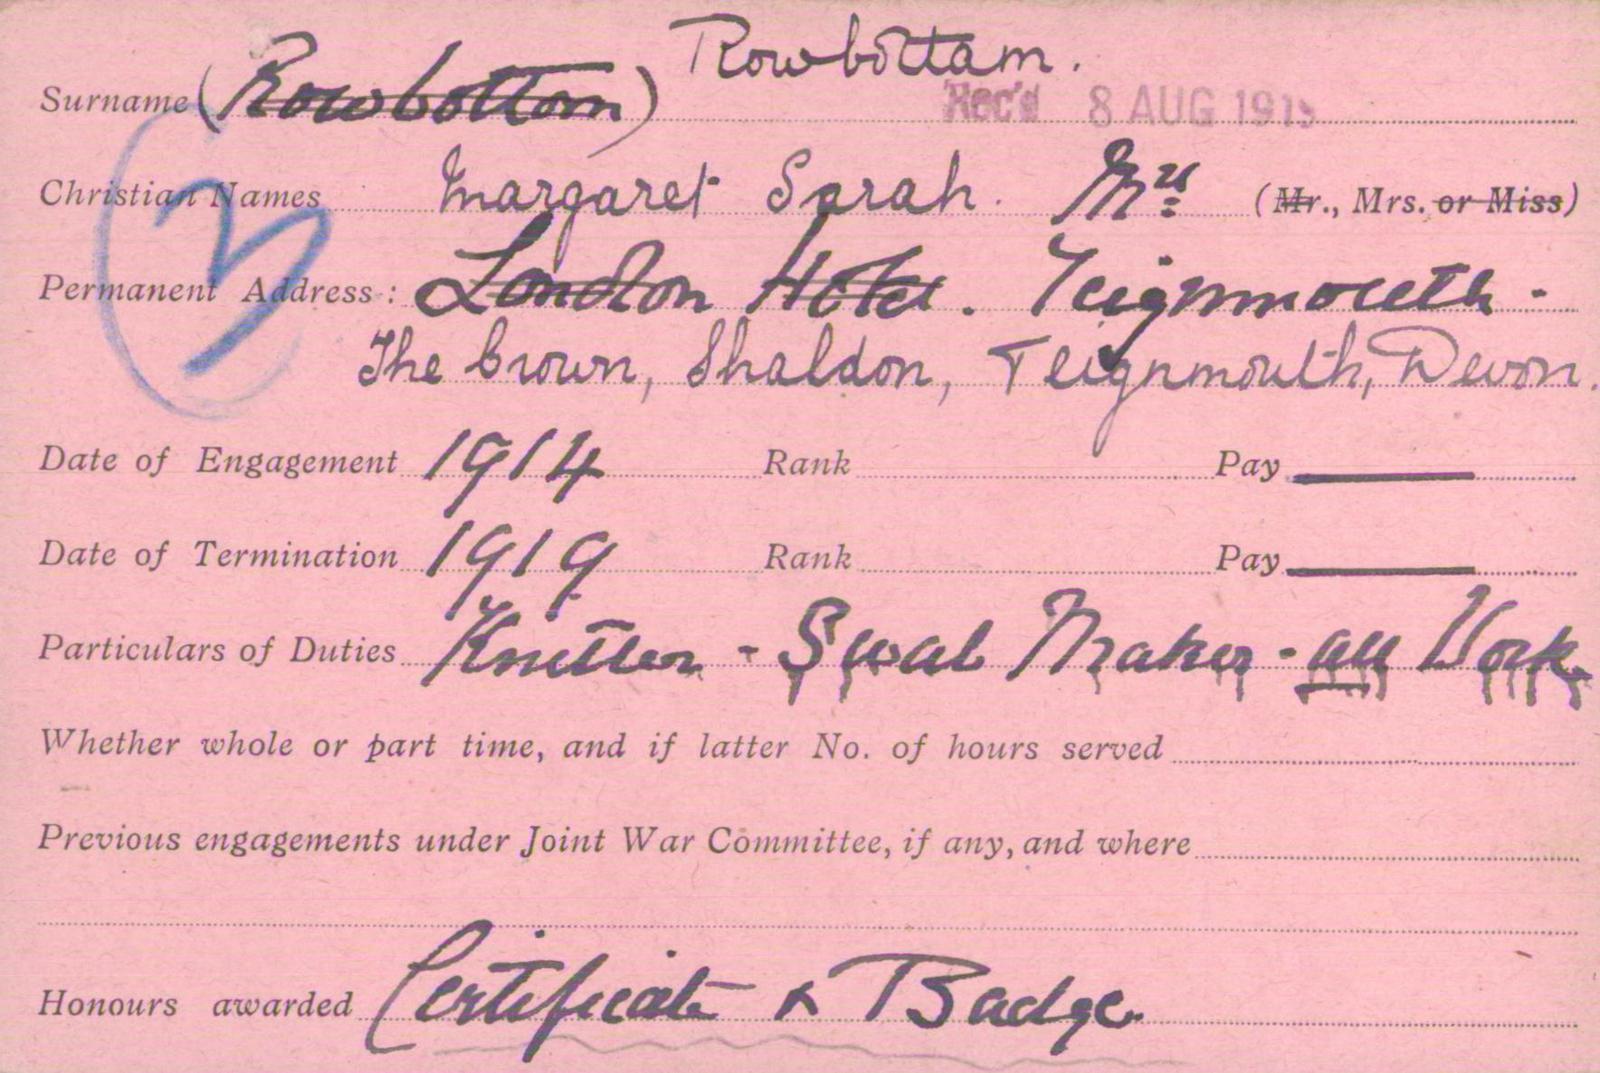 Rowbottam.
Surname (Rowbottom)
Rec'd 8 AUG 1919
Christian Names Margaret Sarah. Mrs (Mr., Mrs. or Miss)
Permanent Address: London Hotel. Teignmouth.
The Crown, Shaldon, Teignmouth, Devon.
Date of Engagement 1914 Rank Pay
Date of Termination 1919 Rank Pay
Particulars of Duties Knitter - Swab Maker - all Work
Whether whole or part time, and if latter No. of hours served
Previous engagements under Joint War Committee, if any, and where
Honours awarded Certificate & Badge.